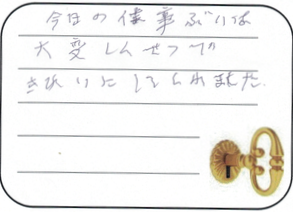 今日の仕事ぶりは
大変しんせつで
きれいにしてくれました.